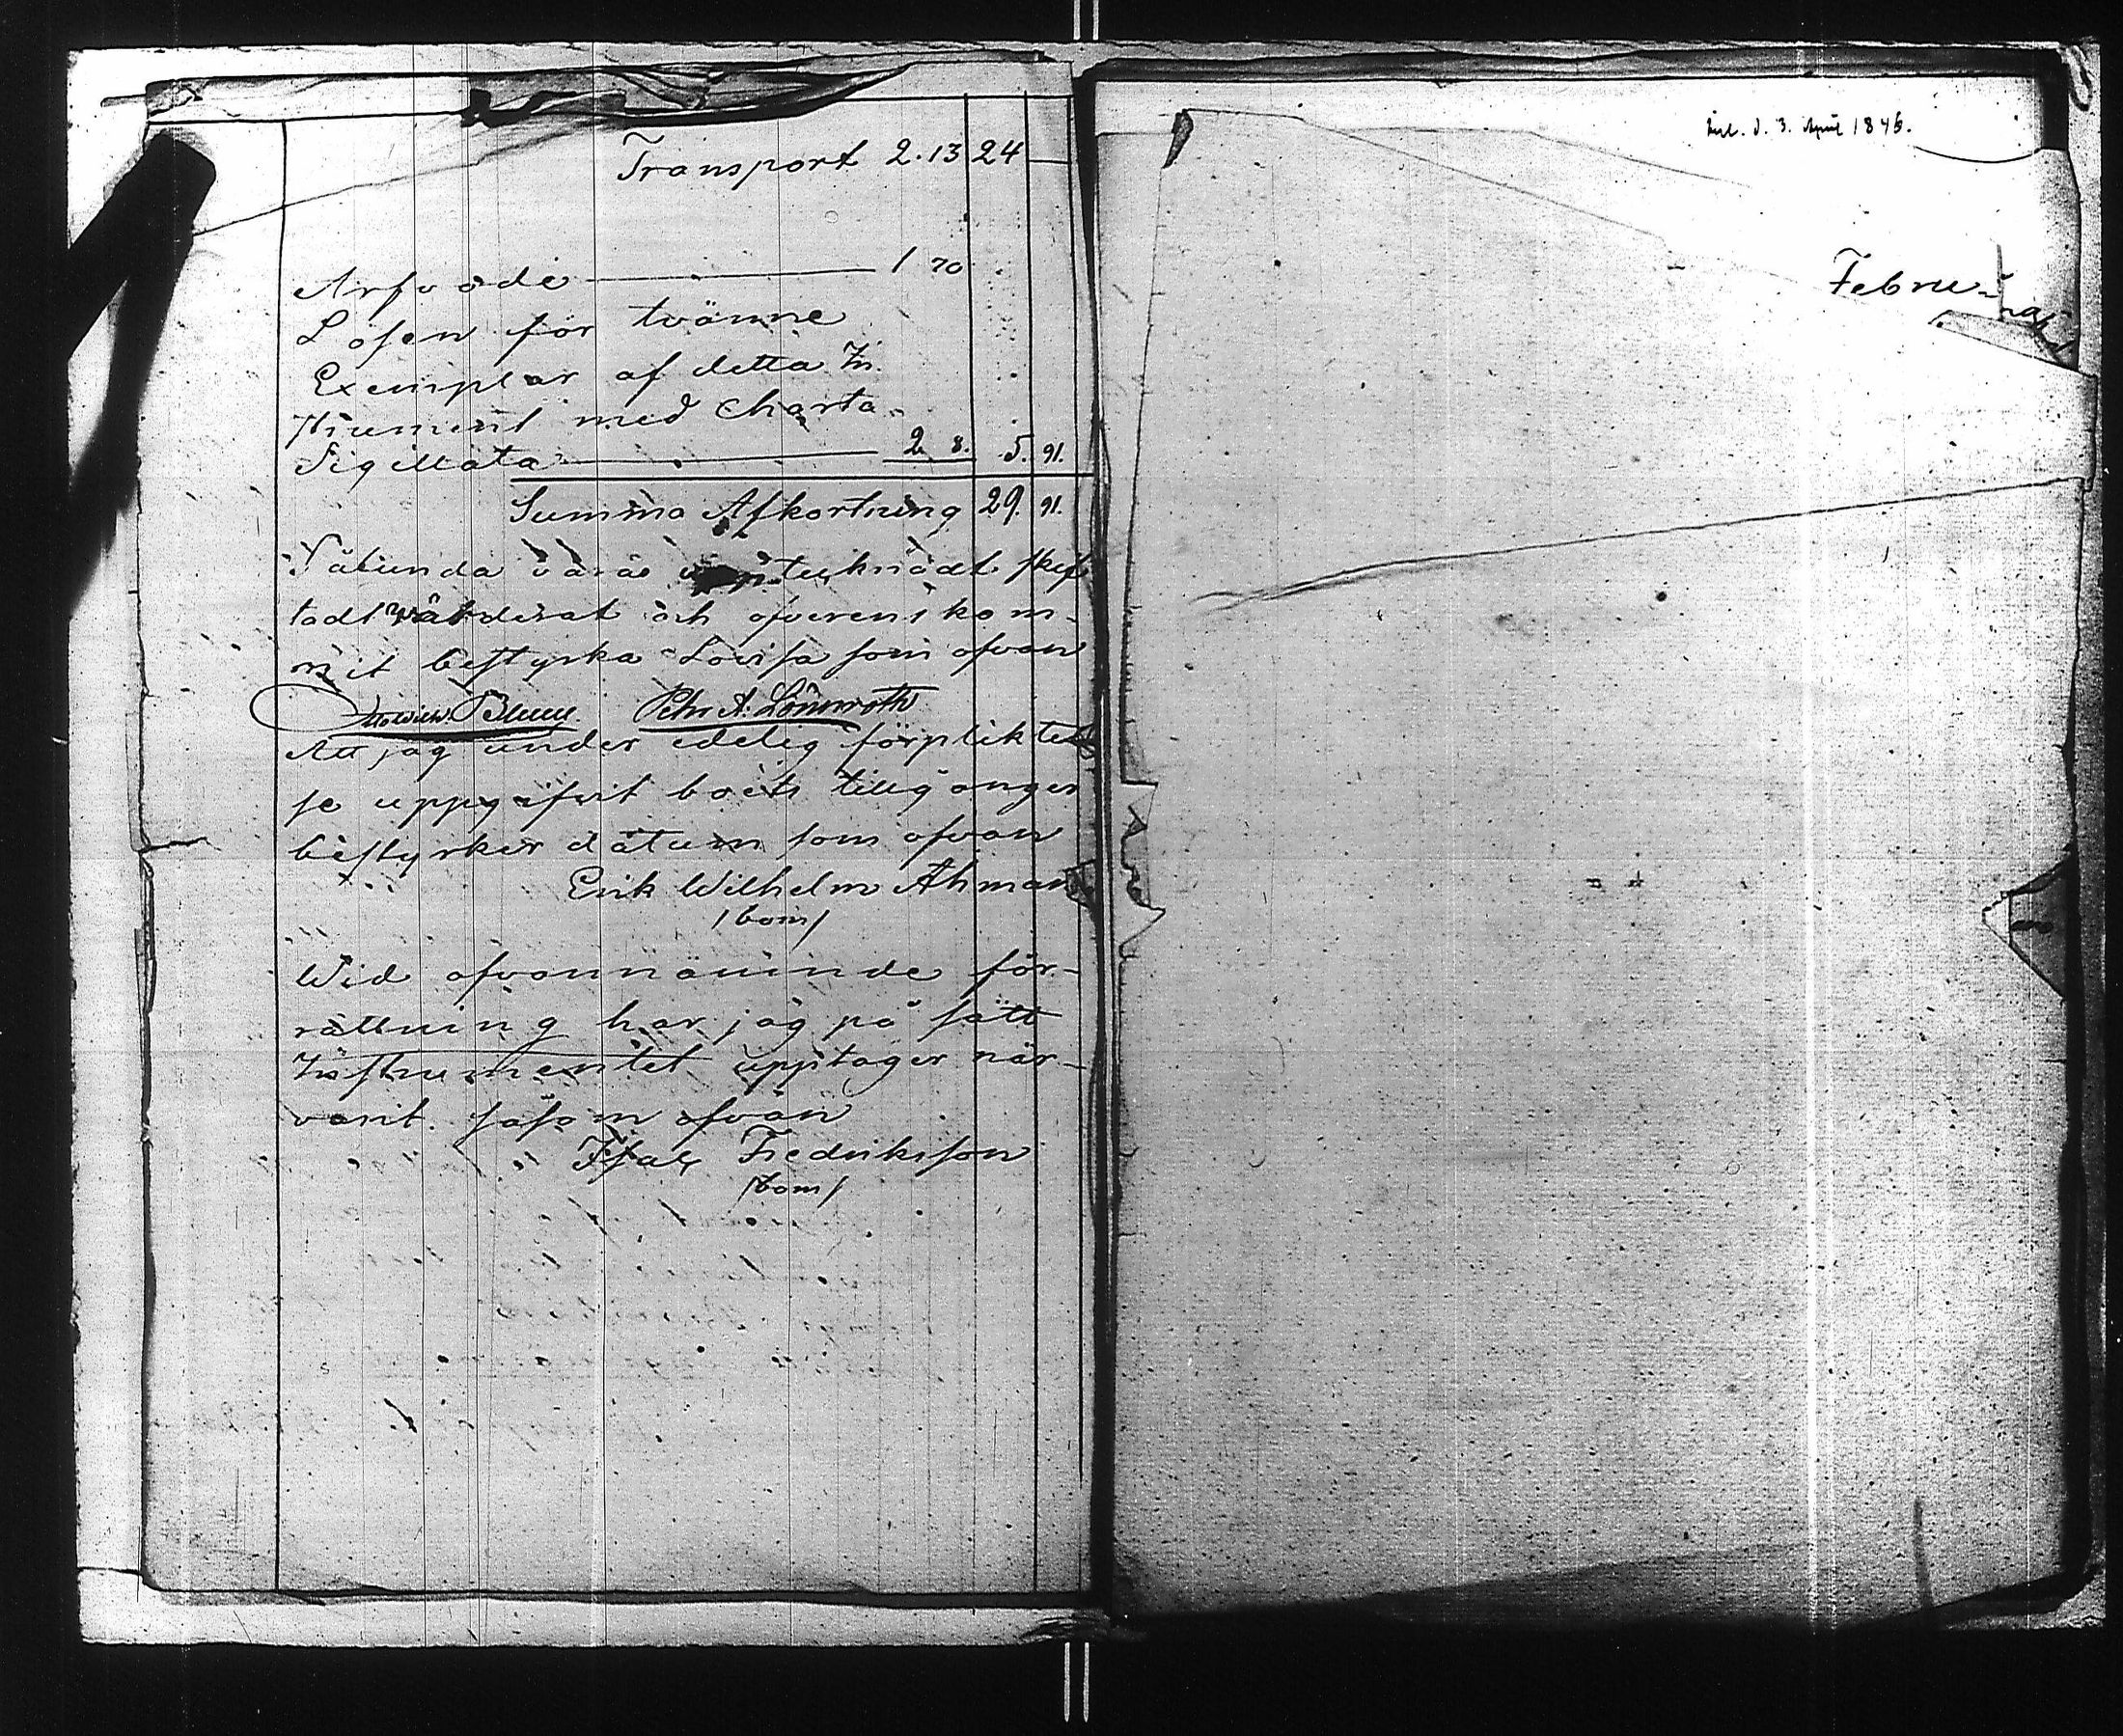 Transport 2.13 24 —
Arfvode 1 70
Lösen för tvänne
Exemplar af detta In-
strument med Charta-
Sigillata 2 8. 5. 91.
Summa Afkortning 29. 91.
Sålunda vara upptecknadt skif-
tadt värderat och öfverenskom-
mit bestyrka Lovisa som ofvan
Petr A. Lönnroth
Att jag under edelig förpliktel-
se uppgifvit boets tillgångar
bestyrker datum som ofvan
Erik Wilhelm Åhman
/bom/
Wid ofvannämnde för-
rättning har jag på sätt
Instrumentet upptager när-
varit. såsom ofvan
Isak Fredriksson
/bom/
d. 3. April 1846.
Febru-